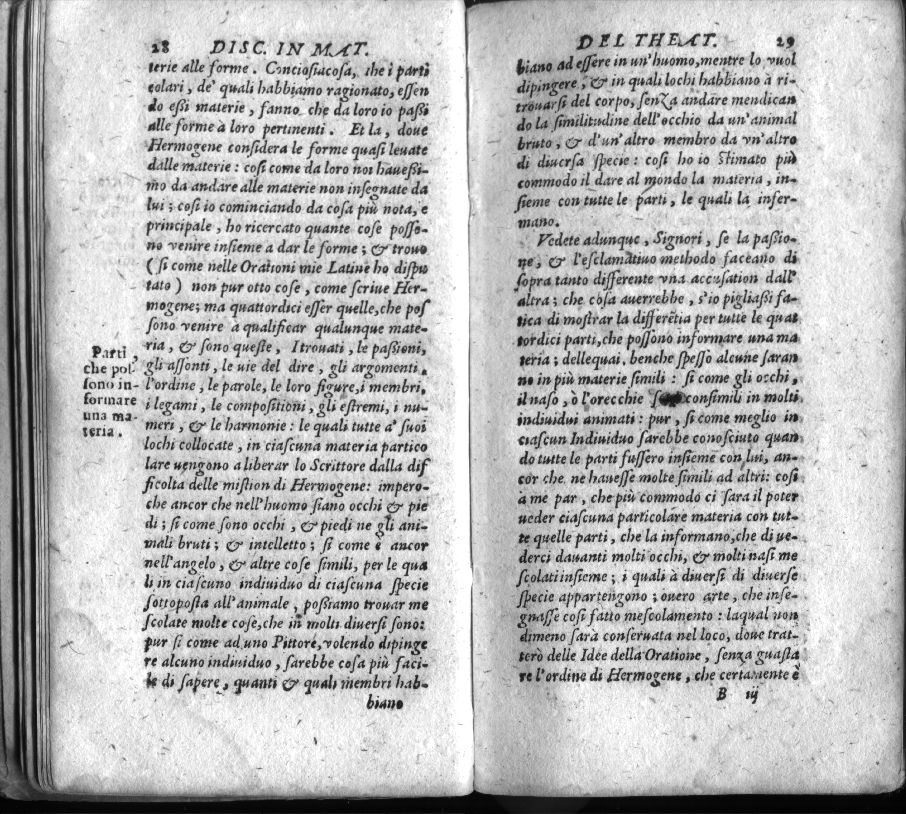 28 DISC. IN MAT.
terie alle forme. Conciosiacosa, che i parti
colari, de' quali habbiamo ragionato, essen
do essi materie, fanno che da loro io passi
alle forme à loro pertinenti. Et la, doue
Hermogene considera le forme quasi leuate
dalle materie: cosi come da loro noi hauessi-
mo da andare alle materie non insegnate da
lui; cosi io cominciando da cosa più nota, e
principale, ho ricercato quante cose posso-
no venire insieme a dar le forme; & trouo
(si come nelle Orationi mie Latine ho dispu
tato) non pur otto cose, come scriue Her-
mogene; ma quattordici esser quelle, che pos
sono venire à qualificar qualunque mate-
ria, & sono queste, I trouati, le passioni,
gli assonti, le uie del dire, gli argomenti,
l'ordine, le parole, le loro figure, i membri,
i legami, le compositioni, gli estremi, i nu-
meri, & le harmonie: le quali tutte a' suoi
lochi collocate, in ciascuna materia partico
lare uengono a liberar lo Scrittore dalla dif
ficolta delle mistion di Hermogene: impero-
che ancor che nell'huomo siano occhi & pie
di; si come sono occhi, & piedi ne gli ani-
mali bruti; & intelletto; si come è ancor
nell'angelo, & altre cose simili, per le qua
li in ciascuno indiuiduo di ciascuna specie
sottoposta all'animale, possiamo trouar me
scolate molte cose, che in molti diuersi sono:
pur si come ad uno Pittore, volendo dipinge
re alcuno indiuiduo, sarebbe cosa più faci-
le di sapere, quanti & quali membri hab-
biano
Parti,
che pos
sono in-
formare
una ma-
teria.
DEL THEAT. 29
biano ad essere in un'huomo, mentre lo vuol
dipingere, & in quali lochi habbiano à ri-
trouarsi del corpo, senza andare mendican
do la similitudine dell'occhio da un'animal
bruto, & d'un'altro membro da vn'altro
di diuersa specie: cosi ho io stimato più
commodo il dare al mondo la materia, in-
sieme con tutte le parti, le quali la infor-
mano.
Vedete adunque, Signori, se la passio-
ne, & l'esclamatiuo methodo faceano di
sopra tanto differente vna accusation dall'
altra; che cosa auerrebbe, s'io pigliassi fa-
tica di mostrar la differẽtia per tutte le quat
tordici parti, che possono informare una ma
teria; dellequai, benche spesso alcune saran
no in più materie simili: si come gli occhi,
il naso, ò l'orecchie consimili in molti
indiuidui animati: pur, si come meglio in
ciascun Indiuiduo sarebbe conosciuto quan
do tutte le parti fussero insieme con lui, an-
cor che ne hauesse molte simili ad altri: cosi
à me par, che più commodo ci sara il poter
ueder ciascuna particolare materia con tut-
te quelle parti, che la informano, che di ue-
derci dauanti molti occhi, & molti nasi me
scolati insieme; i quali à diuersi di diuerse
specie appartengono; ouero arte, che inse-
gnasse cosi fatto mescolamento: laqual non
dimeno sarà conseruata nel loco, doue trat-
terò delle Idee della Oratione, senza guasta
re l'ordine di Hermogene, che certamente è
B iij